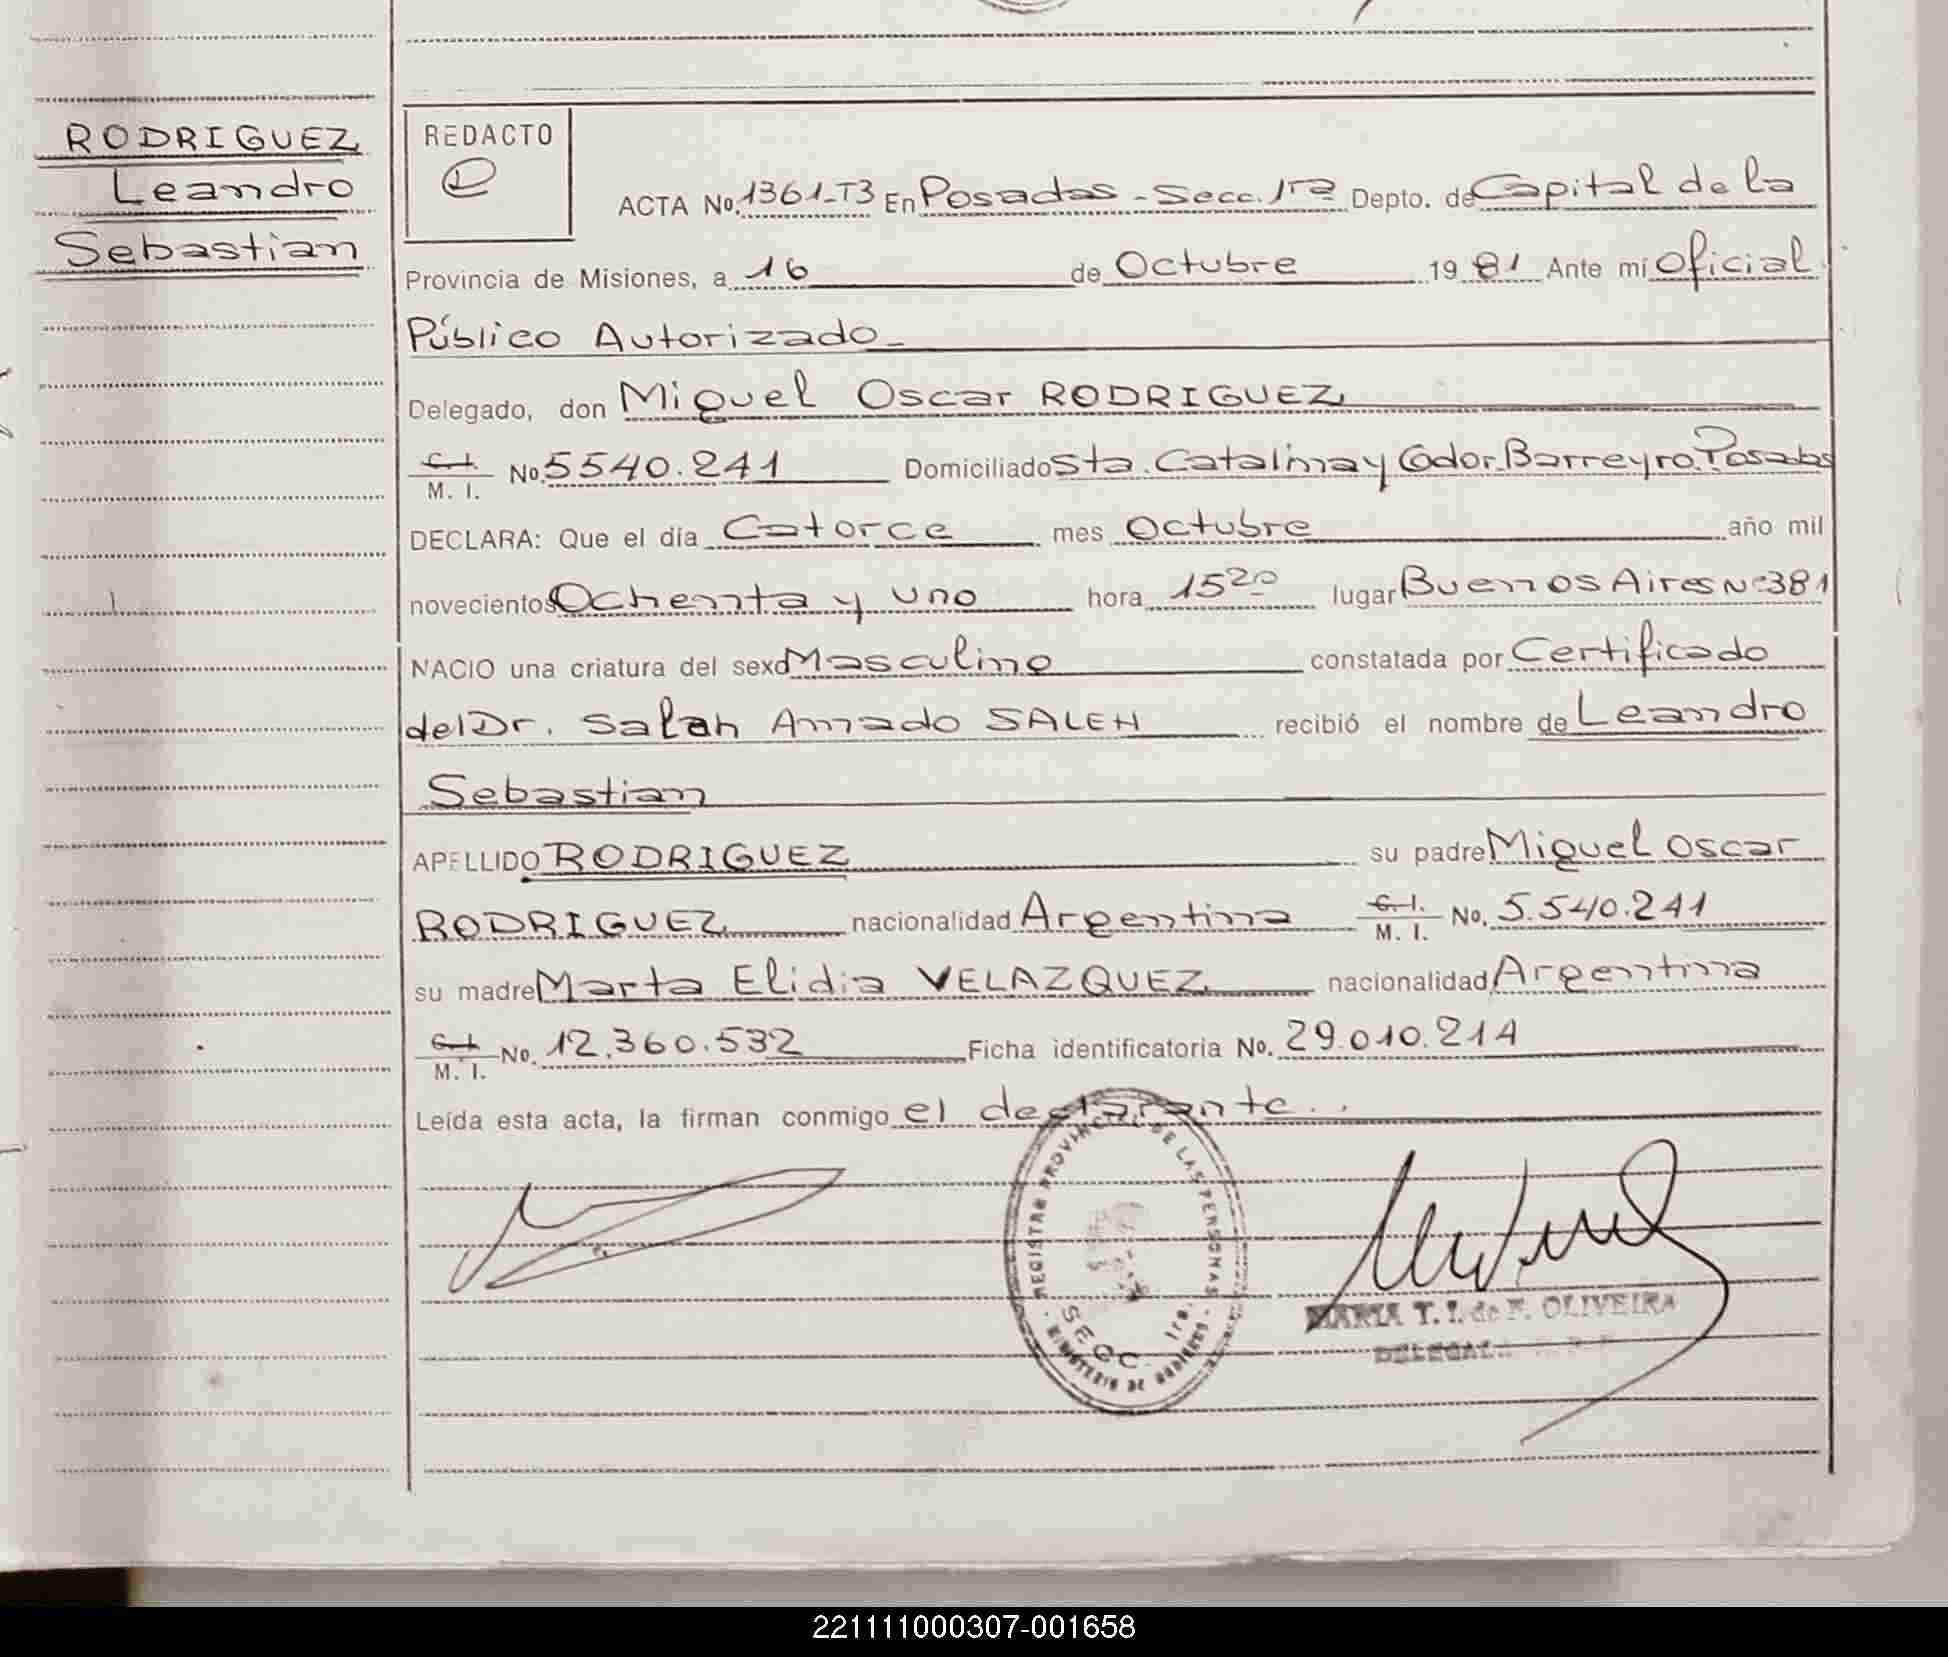 RODRIGUEZ
Leandro
Sebastian
REDACTO
ACTA No. 1361-T3 En Posadas - Secc. 1ra Depto. de Capital de la
Provincia de Misiones, a 16 de Octubre 19 81 Ante mí Oficial
Público Autorizado
Delegado, don Miguel Oscar RODRIGUEZ
C. I. M. I. No. 5540.241 Domiciliado Sta. Catalina y Codor. Barreyro. Posadas
DECLARA: Que el día Catorce mes Octubre año mil
novecientos Ochenta y uno hora 15 20 lugar Buenos Aires Nº 381
NACIO una criatura del sexo Masculino constatada por Certificado
del Dr. Salah Amado SALEH recibió el nombre de Leandro
Sebastian
APELLIDO RODRIGUEZ su padre Miguel Oscar
RODRIGUEZ nacionalidad Argentina C. I. M. I. No. 5.540.241
su madre Marta Elidia VELAZQUEZ nacionalidad Argentina
C. I. M. I. No. 12.360.532 Ficha identificatoria No. 29.010.214
Leída esta acta, la firman conmigo el declarante..
REGISTRO PROVINCIAL DE LAS PERSONAS
SECC. 1ra.
MINISTERIO DE GOBIERNO
MARIA T. I. de F. OLIVEIRA
221111000307-001658